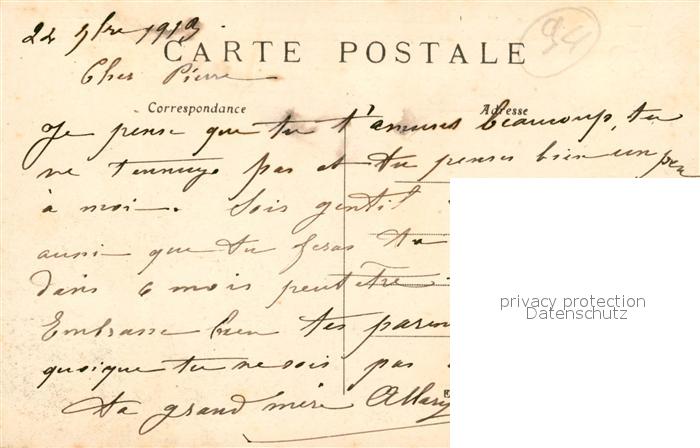 22 9bre 1913
CARTE POSTALE
94
Cher Pierre
Correspondance
Adresse
Je pense que tu t'amuses beaucoup, tu
ne t'ennuye pas et tu penses bien un peu
à moi. Sois gentil
aussi que tu feras ta
dans 6 mois peut être
Embrasse bien tes paren
quoique tu ne sois pas
ta grand mère
privacy protection
Datenschutz